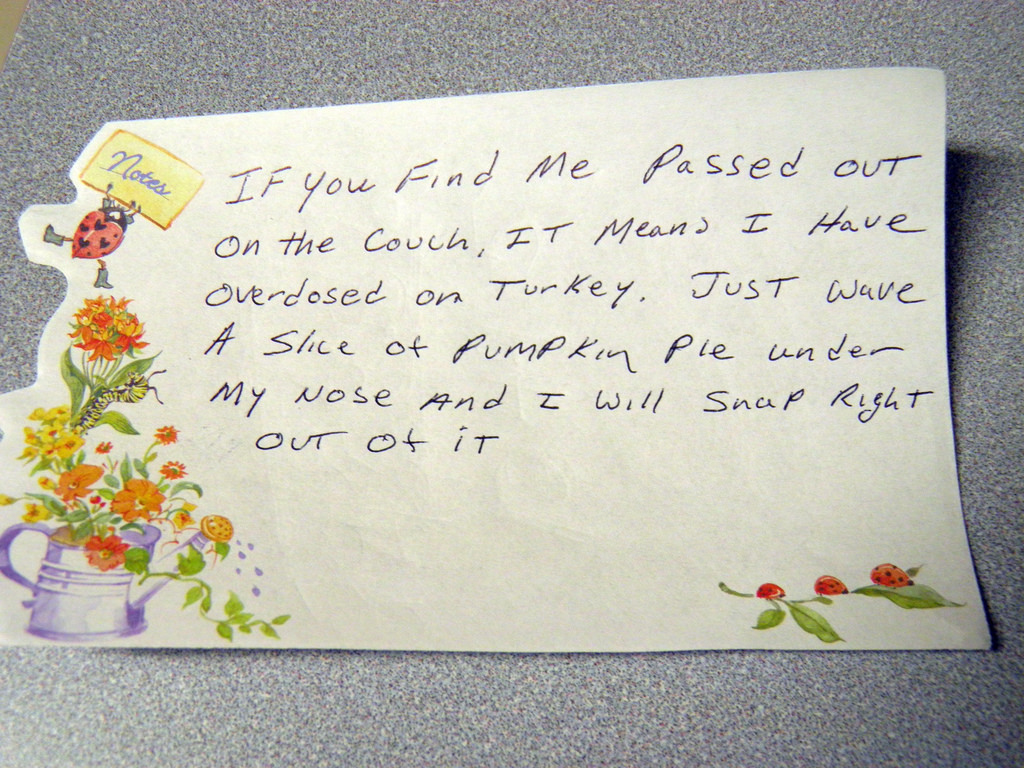 Notes
IF you Find Me Passed OUT
On the Couch, IT Means I Have
Overdosed on Turkey. JUST wave
A Slice of PUMPKin Pie under
My Nose And I Will Snap Right
OUT Of iT